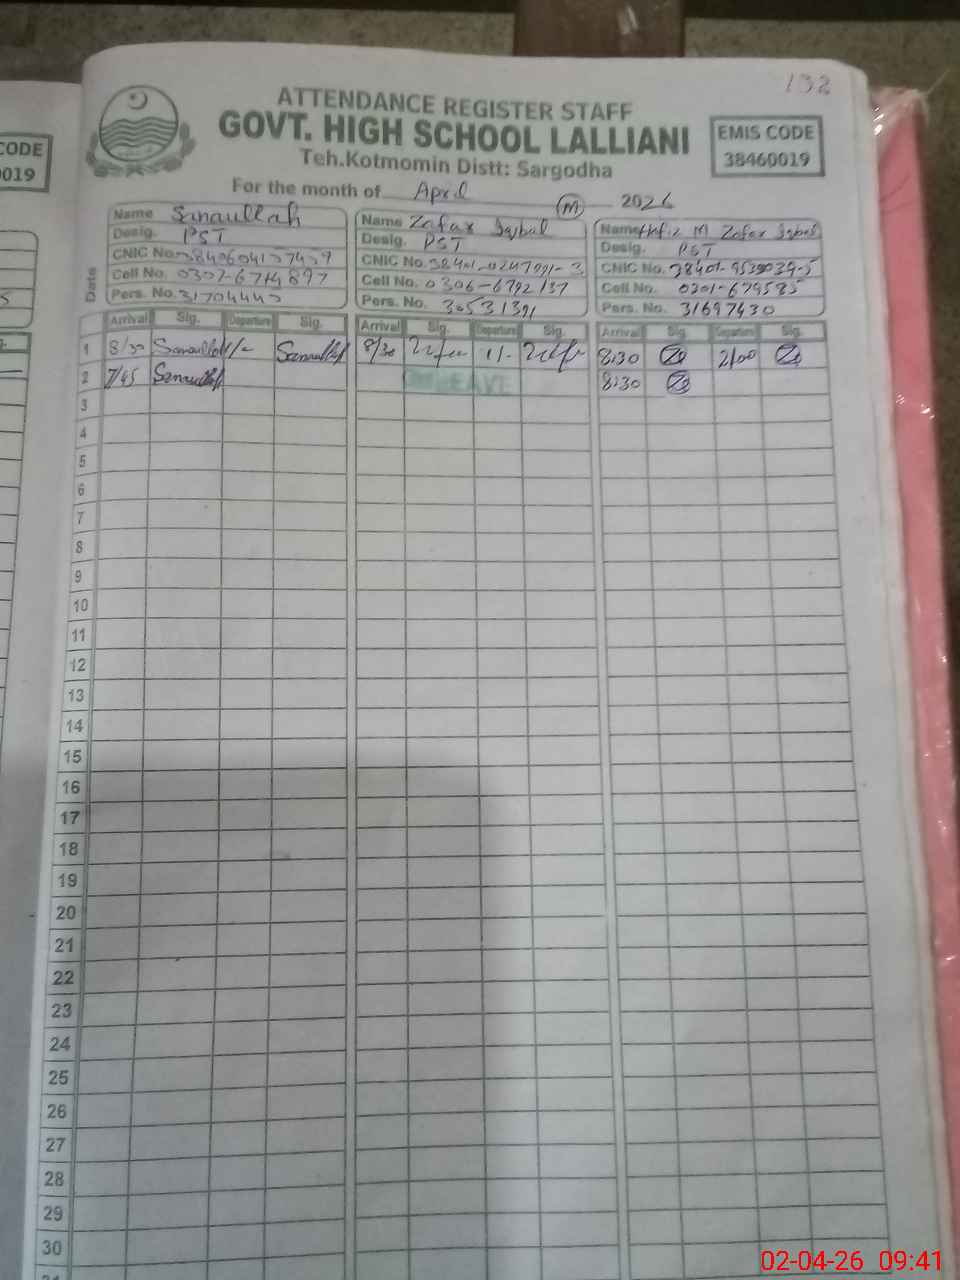 132
ATTENDANCE REGISTER STAFF
GOVT. HIGH SCHOOL LALLIANI
Teh.Kotmomin Distt: Sargodha
EMIS CODE
38460019
CODE
0019
For the month of April (M) 2026
Date
Name Sanaullah
Desig. PST
CNIC No.
Cell No. 0307-6714897
Pers. No.
Name Zafar Iqbal
Desig. PST
CNIC No.
Cell No. 0306-6792137
Pers. No. 30531391
Name Hafiz M Zafar Iqbal
Desig. PST
CNIC No. 38401-9539039-5
Cell No. 0301-679585
Pers. No. 31697430
Arrival Sig. Departure Sig. Arrival Sig. Departure Sig. Arrival Sig. Departure Sig.
1 8/30 Sanaullah Sanaullah 8/30 11- 8:30 2/00
2 7/45 Sanaullah LEAVE 8:30
3
4
5
6
7
8
9
10
11
12
13
14
15
16
17
18
19
20
21
22
23
24
25
26
27
28
29
30
02-04-26 09:41